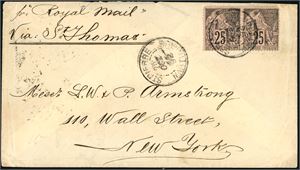 pr Royal Mail
Via St Thomas.
25 25
ST PIERRE MARTINIQUE
Messrs L. W & P. Armstrong
110, Wall Street,
New York